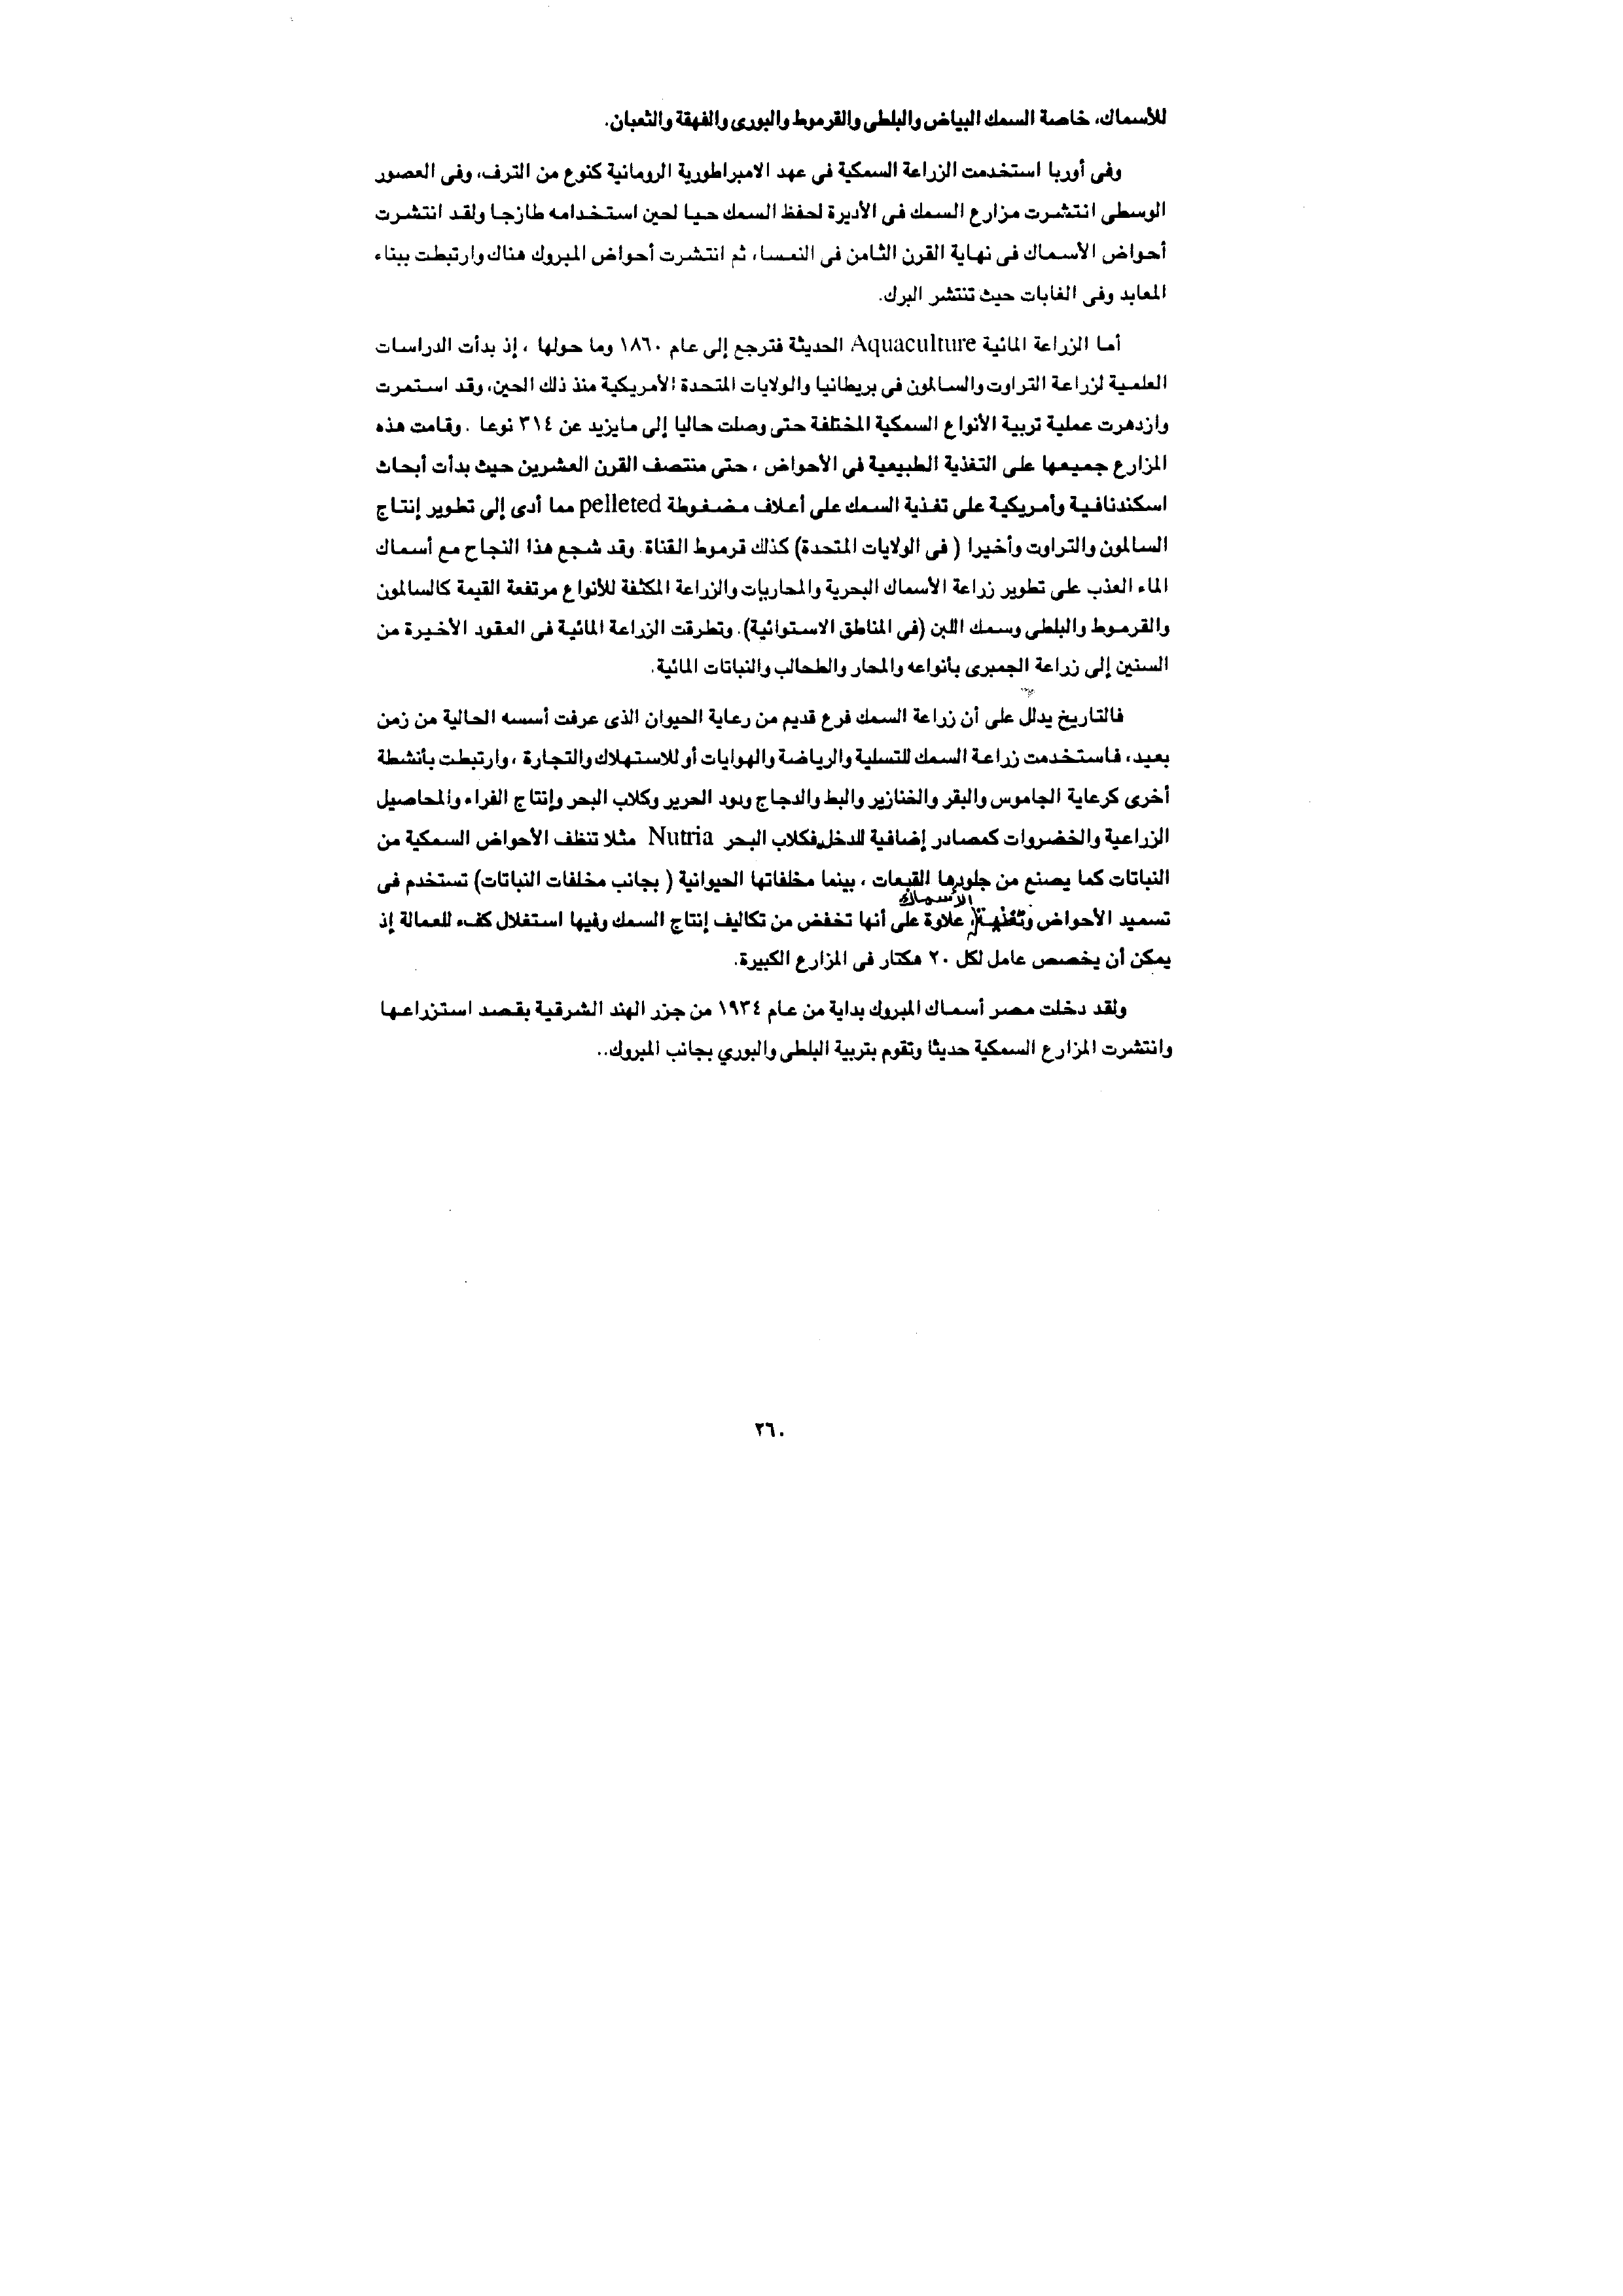 للأسماك، خاصة السمك البياض والبلطى والقرموط والبورى والفهقة والثعبان.
وفى أوربا استخدمت الزراعة السمكية فى عهد الامبراطورية الرومانية كنوع من الترف، وفى العصور
الوسطى انتشرت مزارع السمك فى الأديرة لحفظ السمك حيا لحين استخدامه طازجا ولقد انتشرت
أحواض الأسماك فى نهاية القرن الثامن فى النمسا، ثم انتشرت أحواض المبروك هناك وارتبطت ببناء
المعابد وفى الغابات حيث تنتشر البرك.
أما الزراعة المائية Aquaculture الحديثة فترجع إلى عام ١٨٦٠ وما حولها ، إذ بدأت الدراسات
العلمية لزراعة التراوت والسالمون فى بريطانيا والولايات المتحدة الأمريكية منذ ذلك الحين، وقد استمرت
وازدهرت عملية تربية الأنواع السمكية المختلفة حتى وصلت حاليا إلى مايزيد عن ٣١٤ نوعا . وقامت هذه
المزارع جميعها على التغذية الطبيعية فى الأحواض ، حتى منتصف القرن العشرين حيث بدأت أبحاث
اسكندنافية وأمريكية على تغذية السمك على أعلاف مضغوطة pelleted مما أدى إلى تطوير إنتاج
السالمون والتراوت وأخيرا ( فى الولايات المتحدة) كذلك قرموط القناة. وقد شجع هذا النجاح مع أسماك
الماء العذب على تطوير زراعة الأسماك البحرية والمحاريات والزراعة المكثفة للأنواع مرتفعة القيمة كالسالمون
والقرموط والبلطى وسمك اللبن (فى المناطق الاستوائية). وتطرقت الزراعة المائية فى العقود الأخيرة من
السنين إلى زراعة الجمبرى بأنواعه والمحار والطحالب والنباتات المائية.
فالتاريخ يدلل على أن زراعة السمك فرع قديم من رعاية الحيوان الذى عرفت أسسه الحالية من زمن
بعيد، فاستخدمت زراعة السمك للتسلية والرياضة والهوايات أو للاستهلاك والتجارة ، وارتبطت بأنشطة
أخرى كرعاية الجاموس والبقر والخنازير والبط والدجاج ودود الحرير وكلاب البحر وإنتاج الفراء والمحاصيل
الزراعية والخضروات كمصادر إضافية للدخل،فكلاب البحر Nutria مثلا تنظف الأحواض السمكية من
النباتات كما يصنع من جلودها القبعات ، بينما مخلفاتها الحيوانية ( بجانب مخلفات النباتات) تستخدم فى
تسميد الأحواض وتغذية الأسماك، علاوة على أنها تخفض من تكاليف إنتاج السمك وفيها استغلال كفء للعمالة إذ
يمكن أن يخصص عامل لكل ٢٠ هكتار فى المزارع الكبيرة.
ولقد دخلت مصر أسماك المبروك بداية من عام ١٩٣٤ من جزر الهند الشرقية بقصد استزراعها
وانتشرت المزارع السمكية حديثا وتقوم بتربية البلطى والبوري بجانب المبروك..
٢٦٠